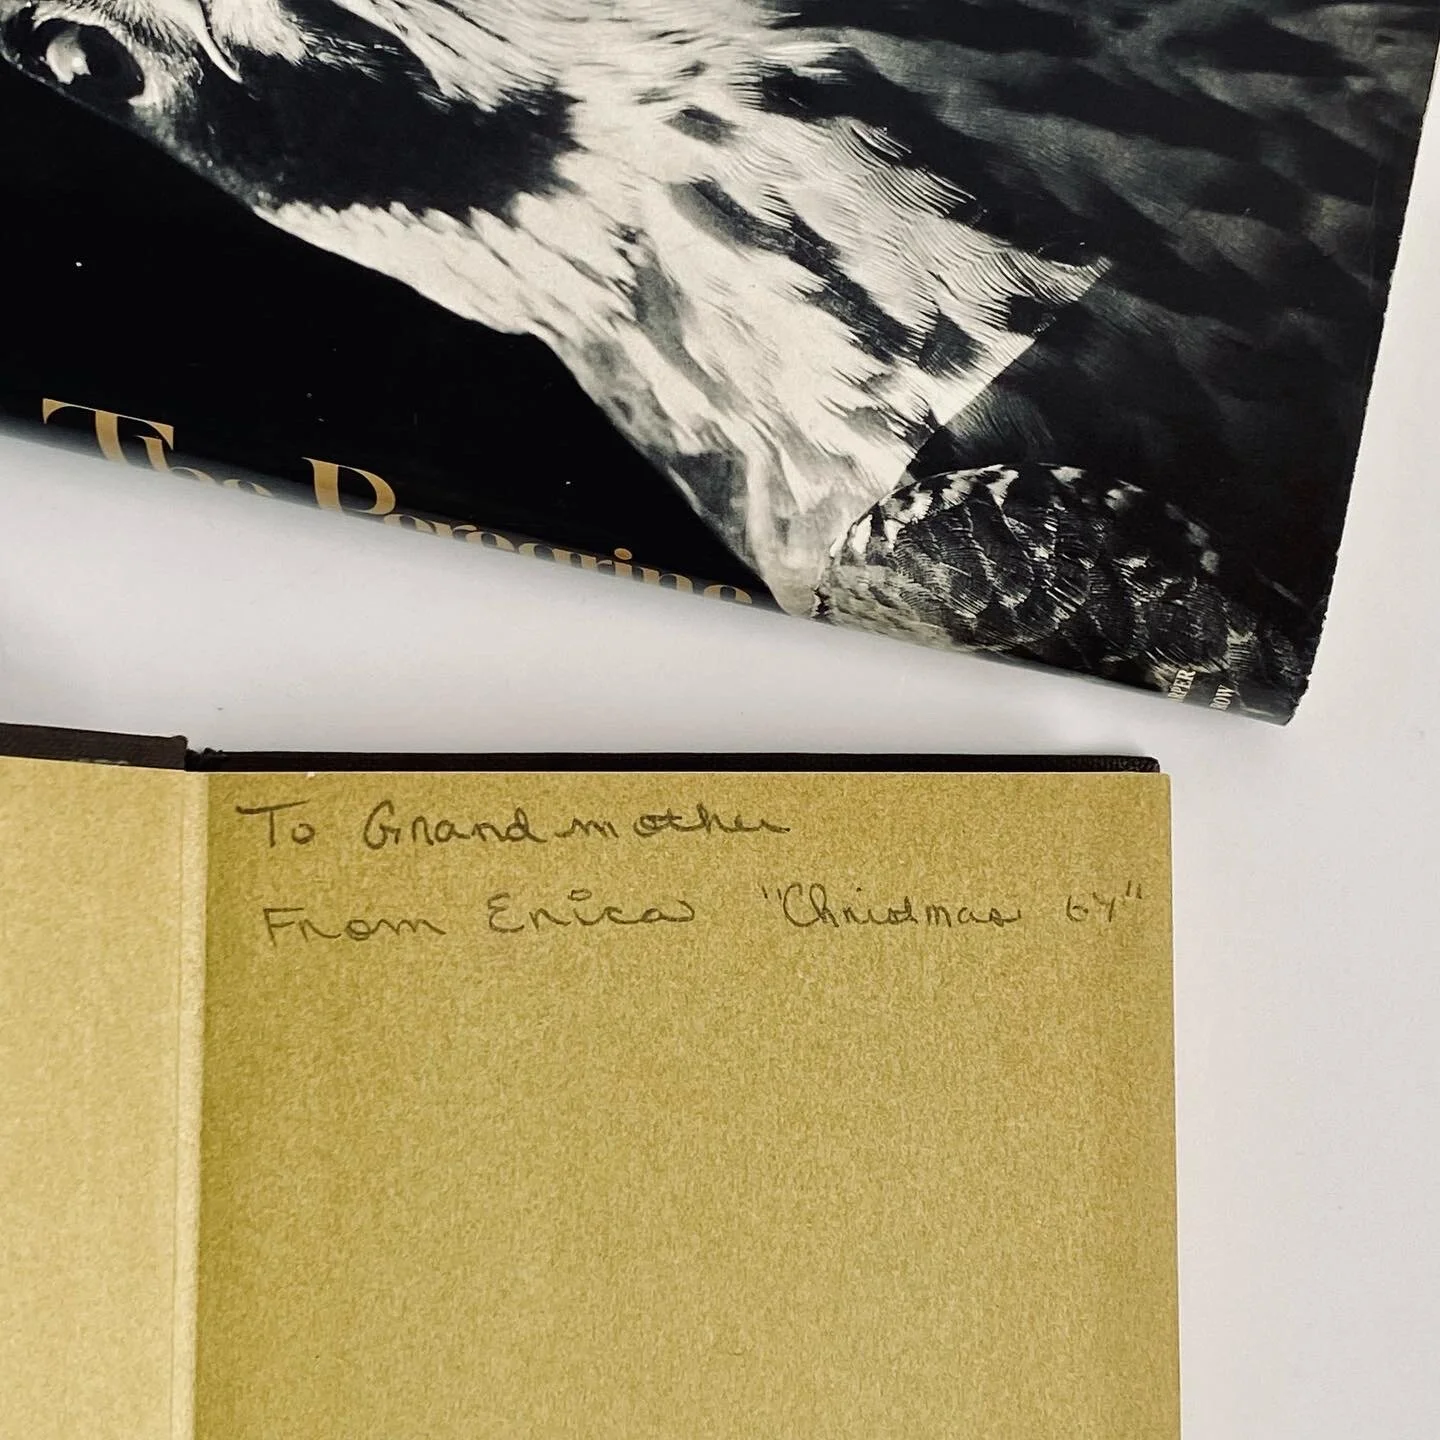 The Peregrine
ARPER
ROW
To Grandmother
From Erica "Christmas 64"